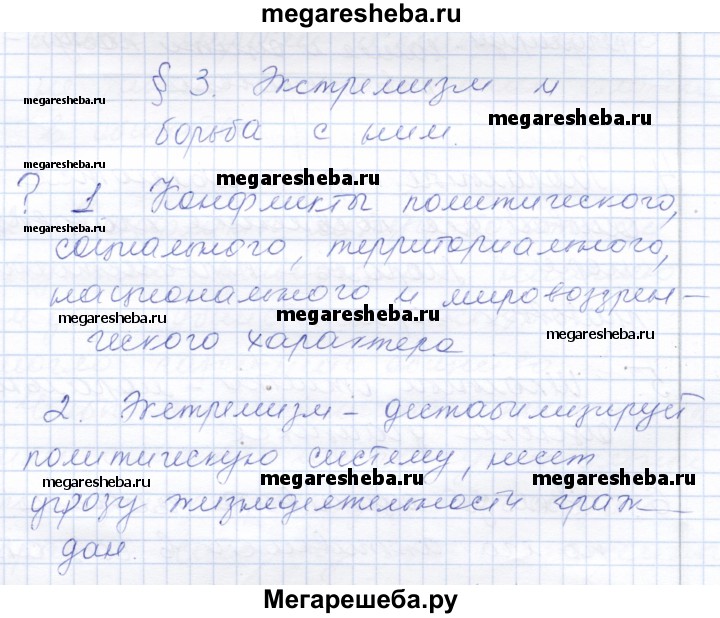 megaresheba.ru
§ 3. Экстремизм и
megaresheba.ru
megaresheba.ru
борьба с ним.
megaresheba.ru
? 1. Конфликты политического,
megaresheba.ru
социального, территориального,
национального и мировоззрен-
megaresheba.ru
megaresheba.ru
megaresheba.ru
ческого характера
2. Экстремизм - дестабилизирует
политическую систему, несет
megaresheba.ru
megaresheba.ru
megaresheba.ru
угрозу жизнедеятельности граж
дан.
Мегарешеба.ру